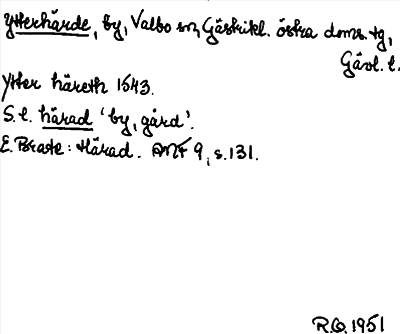 Ytterhärde, by, Valbo sn, Gästrikl. östra doms. tg,
Gävl. l.
Ytter häreth 1543.
S. l. härad 'by, gård'.
E. Brate: Härad. ANF 9, s. 131.
R.O. 1951